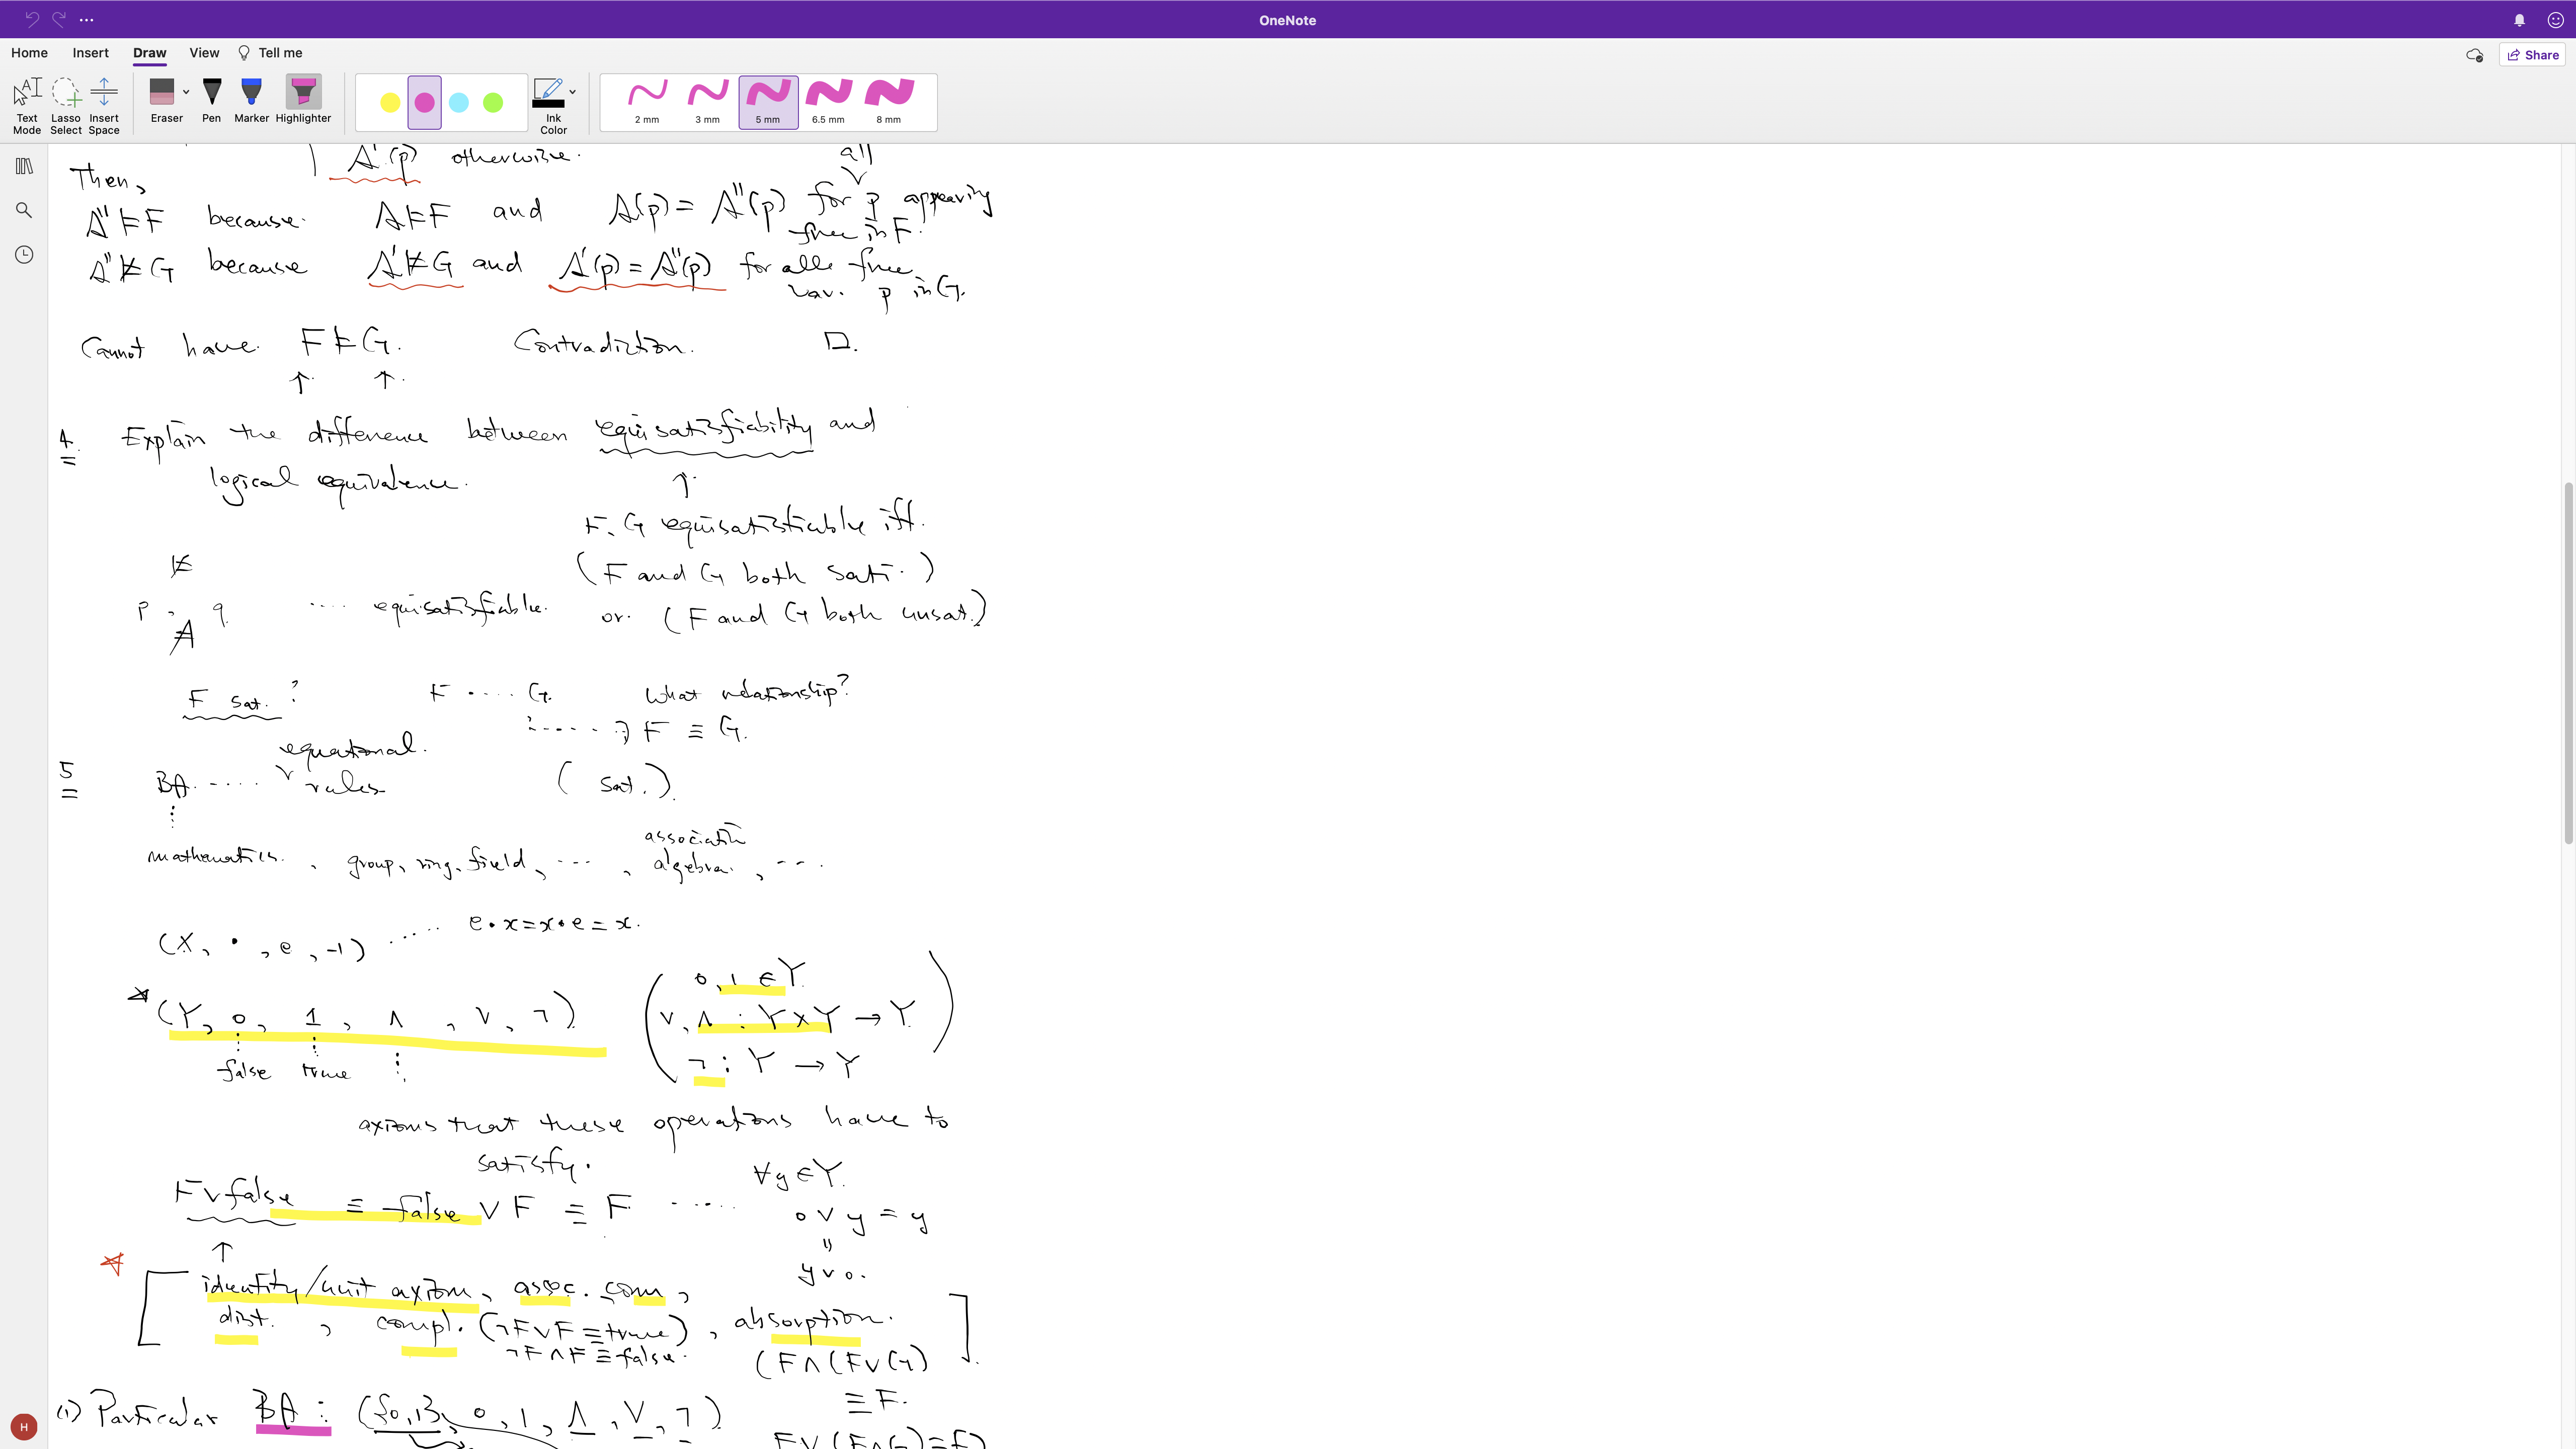 OneNote
Home Insert Draw View Tell me
Share
Text Mode
Lasso Select
Insert Space
Eraser
Pen
Marker
Highlighter
Ink Color
2 mm
3 mm
5 mm
6.5 mm
8 mm
A'(p) otherwise.
Then,
all
A'' ⊨ F because A ⊨ F and A(p) = A''(p) for p appearing
free in F.
A'' ⊭ G because A' ⊭ G and A'(p) = A''(p) for all free
var. p in G.
Cannot have F ⊨ G. Contradiction. □.
↑ ↑
4. Explain the difference between equisatisfiability and
logical equivalence.
↑
F, G equisatisfiable iff.
(F and G both sati.)
p, q .... equisatisfiable. or (F and G both unsat.)
F sat. ? F .... G. What relationship?
F ≡ G.
equational
5 BA .... rules (sat.).
association
mathematics, group, ring, field, ..., algebra, ...
(X, ·, e, -1) ..... e·x=x·e=x.
0,1 ∈ Y
(Y, 0, 1, ∧, ∨, ¬) ∨, ∧ : Y×Y → Y
false true ¬ : Y → Y
axioms that these operations have to
satisfy.
∀y∈Y.
F∨false ≡ false ∨ F ≡ F ..... 0 ∨ y = y
y∨0.
↑
identity/unit axiom, assoc., com,
dist., compl. (¬F∨F≡true), absorption.
¬F∧F≡false. (F∧(F∨G)
≡F.
(1) Particular BA : ({0,1}, 0, 1, ∧, ∨, ¬)
F∨(F∧G)≡F)
H